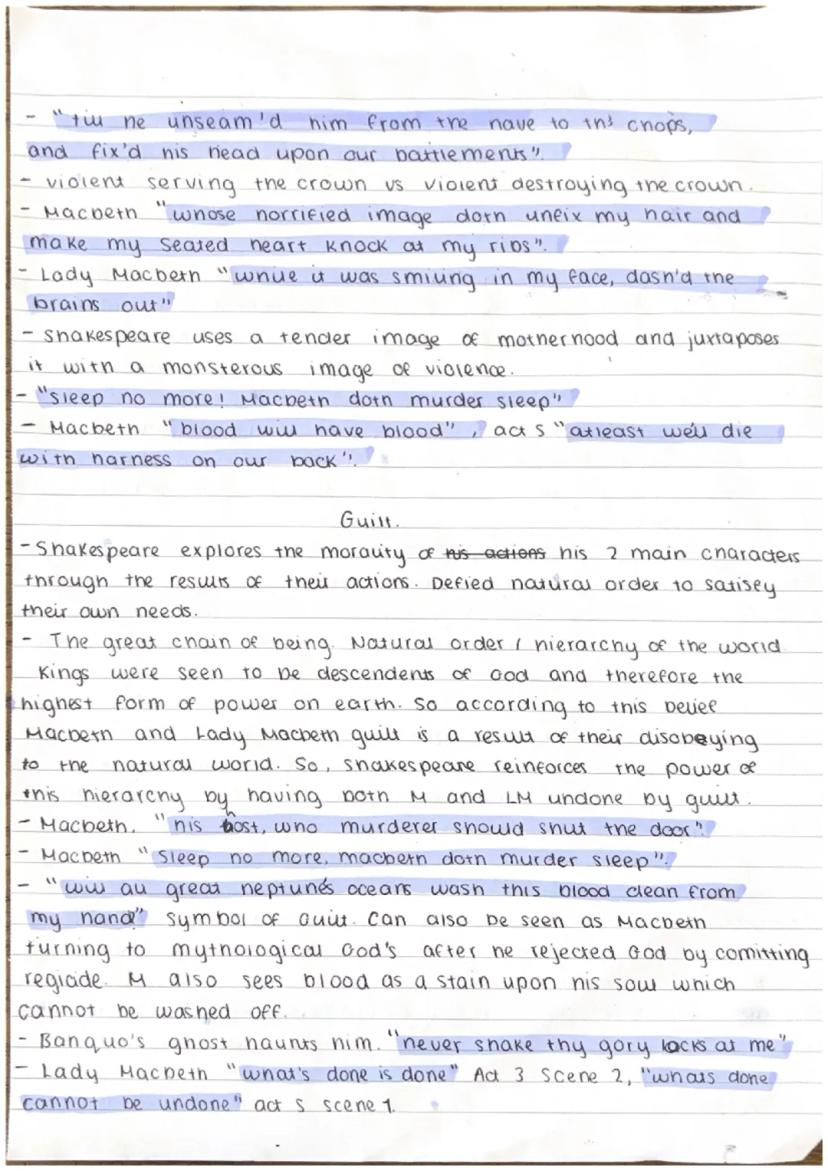 - "till he unseam'd him from the nave to th' chops,
and fix'd his head upon our battlements".
- violent serving the crown vs violent destroying the crown.
- Macbeth "whose horrified image doth unfix my hair and
make my seated heart knock at my ribs".
- Lady Macbeth "while it was smiling in my face, dash'd the
brains out"
- Shakespeare uses a tender image of motherhood and juxtaposes
it with a monsterous image of violence.
- "sleep no more! Macbeth doth murder sleep"
- Macbeth "blood will have blood", act 5 "atleast we'll die
with harness on our back".
Guilt.
- Shakespeare explores the morality of his actions his 2 main characters
through the results of their actions. Defied natural order to satisfy
their own needs.
- The great chain of being. Natural order / hierarchy of the world
Kings were seen to be descendents of God and therefore the
highest form of power on earth. So according to this belief
Macbeth and Lady Macbeth guilt is a result of their disobeying
to the natural world. So, Shakespeare reinforces the power of
this hierarchy by having both M and LM undone by guilt.
- Macbeth. "his host, who murderer should shut the door".
- Macbeth "Sleep no more, macbeth doth murder sleep".
- "will all great neptunes oceans wash this blood clean from
my hand" symbol of Guilt. Can also be seen as Macbeth
turning to mythological God's after he rejected God by comitting
regicide. M also sees blood as a stain upon his soul which
cannot be washed off.
- Banquo's ghost haunts him. "never shake thy gory locks at me"
- Lady Macbeth "what's done is done" Act 3 Scene 2, "whats done
cannot be undone" act 5 scene 1.